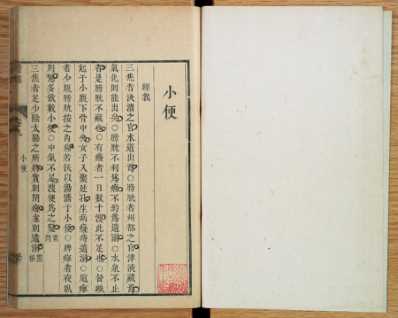 小便
經義
三焦者決瀆之官水道出焉○膀胱者州都之官津液藏焉
氣化則能出矣○膀胱不利爲癃不約爲遺溺○水泉不止
者是膀胱不藏也○有癃者一日數十溲此不足也○督脉
起于小腹下骨中央女子入繫廷孔生病癃痔遺溺○
者少腹膀胱按之內痛若沃以湯濇于小便○
小便○中氣不足溲便爲之變
三焦者足少陰太陽之所將實則閉癃虛則遺溺
小便